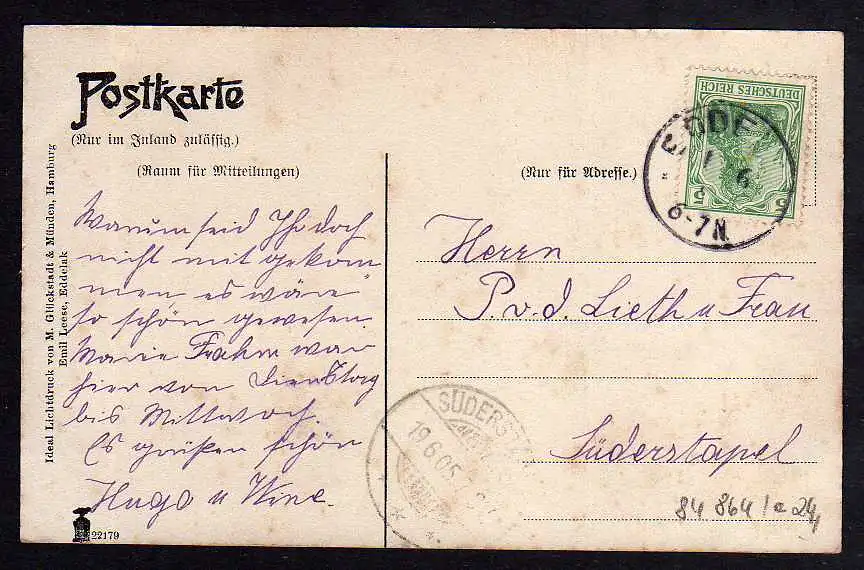 Postkarte
(Nur im Inland zulässig.)
(Raum für Mitteilungen)
(Nur für Adresse.)
DEUTSCHES REICH
5
5
6
6-7N.
Ideal Lichtdruck von M. Glückstadt & Münden, Hamburg
Emil Leese, Eddelak
Warum seid Ihr doch
nicht mit gekom
men, es wäre
so schön gewesen.
Marie Frahm war
hier von Dienstag
bis Mittwoch.
Es grüßen schön
Hugo u
Herrn
P. v. d. Lieth u Frau
Süderstapel
SÜDERS
19.6.05
22179
84 864/a 24